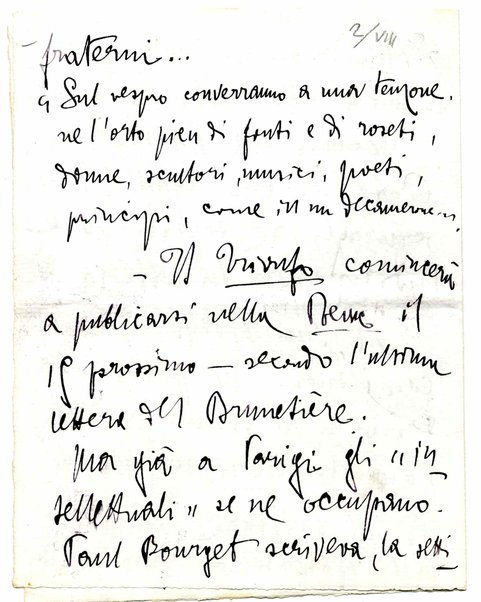 2/VIII
fraterni...
" Sul vespro converranno a una tenzone
ne l'orto pien di fonti e di roseti,
donne, scultori, musici, poeti,
principi, come in un decamerone".
– Il Trionfo comincerà
a publicarsi nella Revue il
15 prossimo – secondo l'ultima
lettera del Brunetière.
Ma già a Parigi gli "in
tellettuali" se ne occupano.
Paul Bourget scriveva, la setti